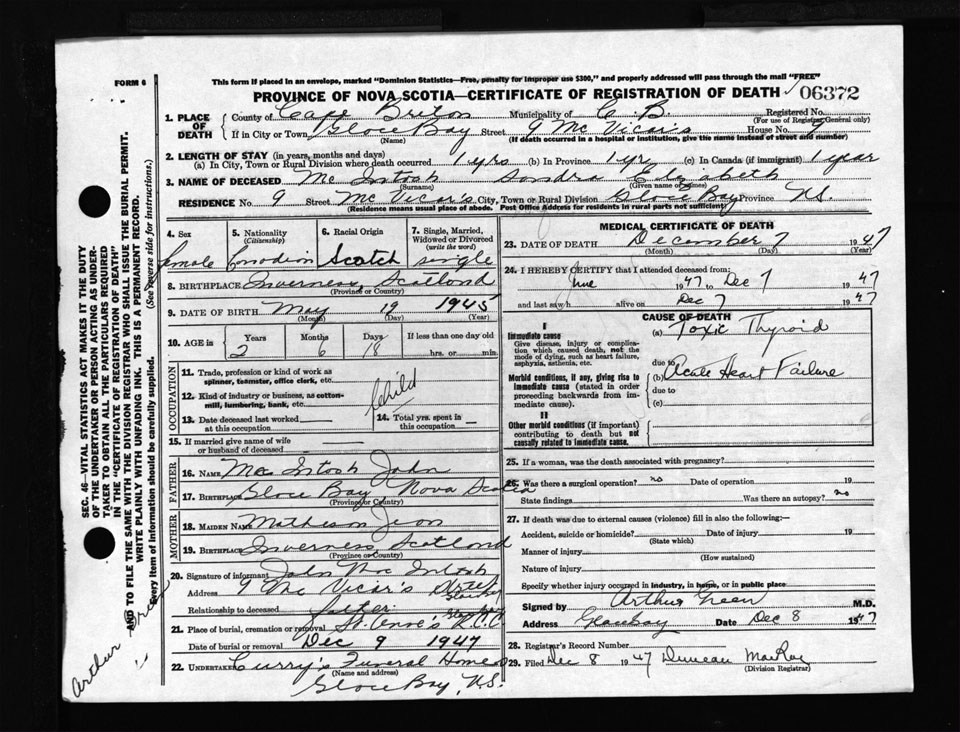 FORM 6
This form if placed in an envelope, marked "Dominion Statistics—Free, penalty for improper use $300," and properly addressed will pass through the mail "FREE"
PROVINCE OF NOVA SCOTIA—CERTIFICATE OF REGISTRATION OF DEATH 06372
1. PLACE OF DEATH
County of Cape Breton Municipality of C. B. Registered No.
(For use of Registrar General only)
If in City or Town Glace Bay Street 9 Mc Vicar's House No. 9
(Name) (If death occurred in a hospital or institution, give the name instead of street and number)
2. LENGTH OF STAY (in years, months and days)
(a) In City, Town or Rural Division where death occurred 1 yrs (b) In Province 1 yr (c) In Canada (if immigrant) 1 year
3. NAME OF DECEASED Mc Intosh Sandra Elizabeth
(Surname) (Given name or names)
RESIDENCE No. 9 Street Mc Vicar's City, Town or Rural Division Glace Bay Province N.S.
(Residence means usual place of abode. Post Office Address for residents in rural parts not sufficient)
4. Sex 5. Nationality (Citizenship) 6. Racial Origin 7. Single, Married, Widowed or Divorced (write the word)
female Canadian Scotch single
8. BIRTHPLACE Inverness, Scotland
(Province or Country)
9. DATE OF BIRTH May 19 1945
(Month) (Day) (Year)
10. AGE is Years Months Days If less than one day old
2 6 18 hrs. or min.
OCCUPATION
11. Trade, profession or kind of work as spinner, teamster, office clerk, etc.
12. Kind of industry or business, as cotton-mill, lumbering, bank, etc.
Child
13. Date deceased last worked at this occupation
14. Total yrs. spent in this occupation
15. If married give name of wife or husband of deceased
FATHER
16. NAME Mc Intosh John
17. BIRTHPLACE Glace Bay Nova Scotia
(Province or Country)
MOTHER
18. MAIDEN NAME Matheson Jean
19. BIRTHPLACE Inverness, Scotland
(Province or Country)
20. Signature of informant John Mac Intosh
Address 9 Mc Vicar's
Relationship to deceased father
21. Place of burial, cremation or removal St. Anne's R.C.C
Date of burial or removal Dec 9 1947
22. UNDERTAKER Curry's Funeral Home
(Name and address)
Glace Bay, N.S.
MEDICAL CERTIFICATE OF DEATH
23. DATE OF DEATH December 7 1947
(Month) (Day) (Year)
24. I HEREBY CERTIFY that I attended deceased from:
June 1947 to Dec 7 1947
and last saw h alive on Dec 7 1947
CAUSE OF DEATH
I
Immediate cause
Give disease, injury or complication which caused death, not the mode of dying, such as heart failure, asphyxia, asthenia, etc.
(a) Toxic Thyroid
due to
Morbid conditions, if any, giving rise to immediate cause (stated in order proceeding backwards from immediate cause).
(b) Acute Heart Failure
due to
(c)
II
Other morbid conditions (if important) contributing to death but not causally related to immediate cause.
25. If a woman, was the death associated with pregnancy?
26. Was there a surgical operation? no Date of operation 19
State findings Was there an autopsy? no
27. If death was due to external causes (violence) fill in also the following:—
Accident, suicide or homicide? Date of injury 19
(State which)
Manner of injury
(How sustained)
Nature of injury
Specify whether injury occurred in industry, in home, or in public place
Signed by Arthur Green M.D.
Address Glace Bay Date Dec 8 1947
28. Registrar's Record Number
29. Filed Dec 8 1947 Duncan MacRae
(Division Registrar)
SEC. 46—VITAL STATISTICS ACT MAKES IT THE DUTY
OF THE UNDERTAKER OR PERSON ACTING AS UNDER-
TAKER TO OBTAIN ALL THE PARTICULARS REQUIRED
IN THE "CERTIFICATE OF REGISTRATION OF DEATH"
AND TO FILE THE SAME WITH THE DIVISION REGISTRAR WHO SHALL ISSUE THE BURIAL PERMIT.
WRITE PLAINLY WITH UNFADING INK. THIS IS A PERMANENT RECORD.
Every item of information should be carefully supplied. (See reverse side for instructions.)
Arthur